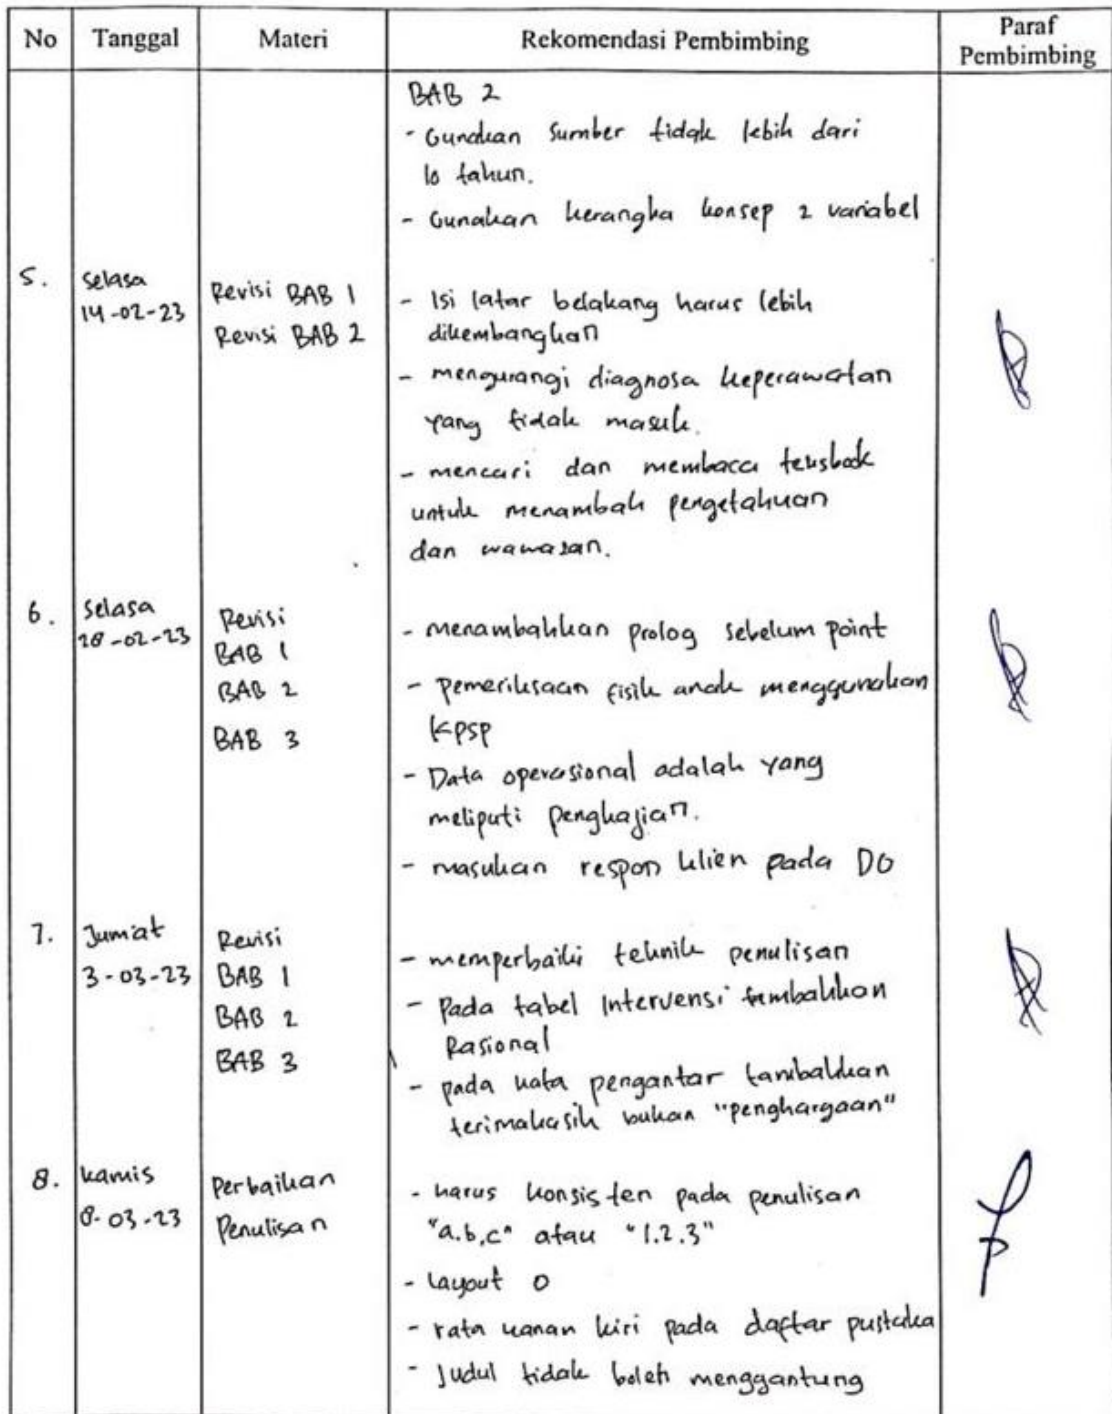 No Tanggal Materi Rekomendasi Pembimbing Paraf Pembimbing
BAB 2
- Gunakan sumber tidak lebih dari
10 tahun.
- Gunakan kerangka konsep 2 variabel
5. Selasa
14-02-23
Revisi BAB 1
Revisi BAB 2
- Isi latar belakang harus lebih
dikembangkan
- mengurangi diagnosa keperawatan
yang tidak masuk.
- mencari dan membaca teksbook
untuk menambah pengetahuan
dan wawasan.
6. Selasa
28-02-23
Revisi
BAB 1
BAB 2
BAB 3
- menambahkan prolog sebelum point
- pemeriksaan fisik anak menggunakan
KPSP
- Data operasional adalah yang
meliputi pengkajian.
- masukan respon klien pada DO
7. Jumiat
3-03-23
Revisi
BAB 1
BAB 2
BAB 3
- memperbaiki teknik penulisan
- Pada tabel Intervensi tambahkan
Rasional
- pada kata pengantar tambahkan
terimakasih bukan "penghargaan"
8. kamis
8-03-23
Perbaikan
Penulisan
- harus konsisten pada penulisan
"a.b,c" atau "1.2.3"
- Layout 0
- rata kanan kiri pada daftar pustaka
- Judul tidak boleh menggantung